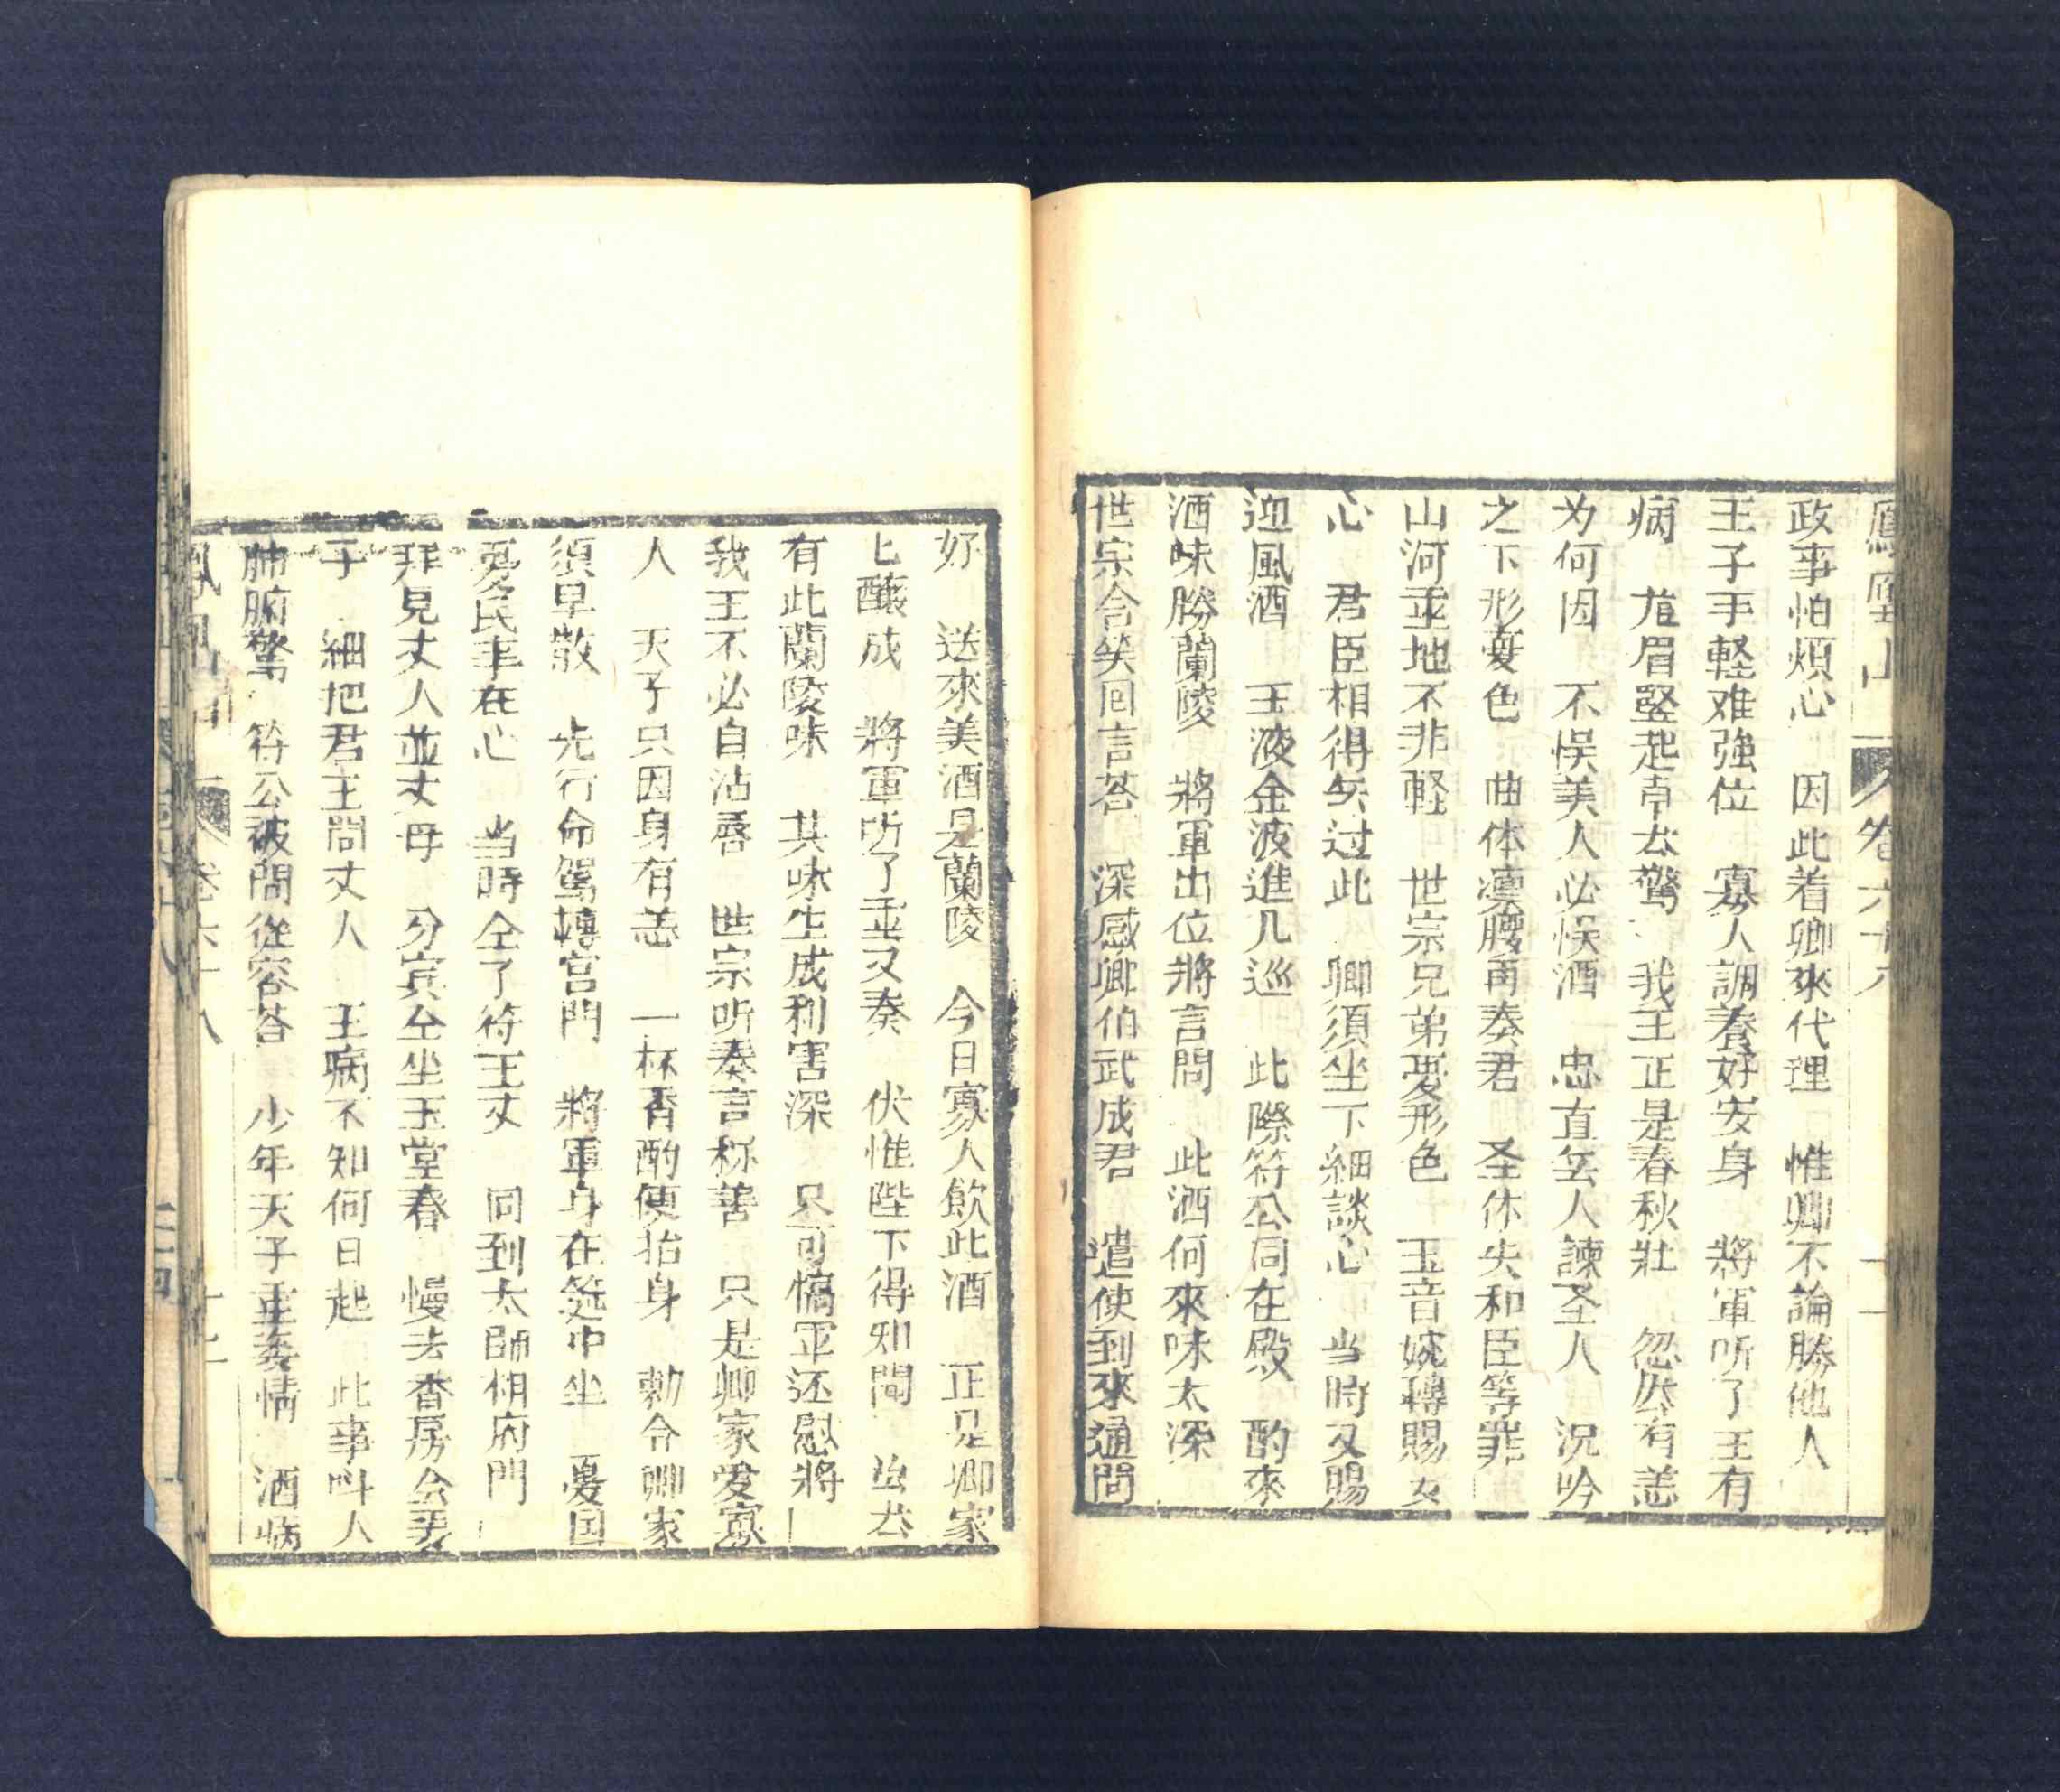 鳳凰山 卷六十八
政事怕煩心 因此着卿來代理 惟卿不論勝他人
王子手軽难強位 寡人調養好安身 將軍听了王有
病 眉竪起 驚 我王正是春秋壯 忽然有恙
为何因 不悮美人必悮酒 忠直 人諫圣人 況吟
之下形憂色 曲体 腰再奏君 圣体失和臣等罪
山河 地不非軽 世宗兄弟憂形色 玉音婉轉賜
心 君臣相得矣过此 卿須坐下細談心 当時又賜
迎風酒 玉液金波進几巡 此際符公同在殿 酌來
酒味勝蘭陵 將軍出位將言問 此酒何來味太深
世宗含笑囘言荅 深感卿伯武成君 遣使到來通問
好 送來美酒是蘭陵 今日寡人飲此酒 正是卿家
釀成 將軍听了 又奏 伏惟陛下得知聞
有此蘭陵味 其味生成利害深 只可犒軍还慰將
我王不必自沾唇 世宗听奏言称善 只是卿家愛寡
人 天子只因身有恙 一杯香酌便抬身 勅令卿家
須早散 先行命駕轉宫門 將軍身在筵中坐 憂国
憂民事在心 当時仝了符王丈 同到太師相府門
拜見丈人並丈母 分宾仝坐玉堂春 慢去香房会妻
子 細把君王問丈人 王病不知何日起 此事叫人
肺腑驚 符公被問從容荅 少年天子重姿情 酒病
鳳凰山 卷六十八